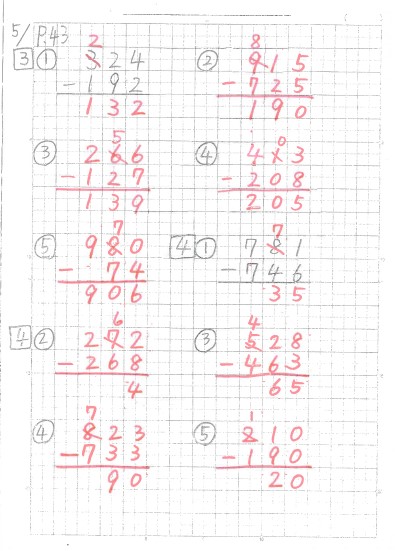 5/ P.43
3 ①
2
324
-192
132
②
8
915
-725
190
③
5
266
-127
139
④
0
413
-208
205
⑤
7
980
- 74
906
4 ①
7
781
-746
35
4 ②
6
272
-268
4
③
4
528
-463
65
④
7
823
-733
90
⑤
1
210
-190
20